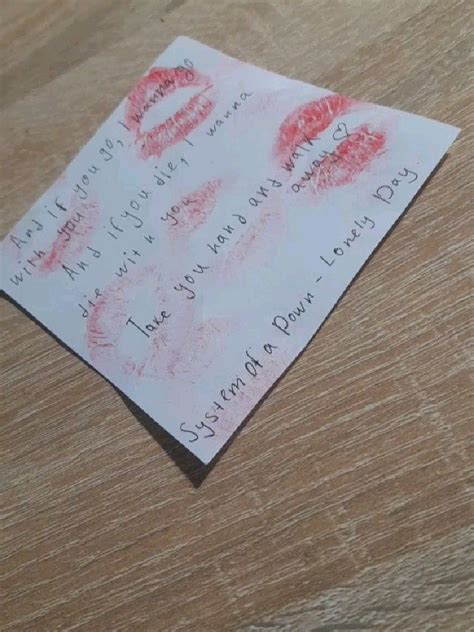 And if you go, I wanna go
with you
And if you die, I wanna
die with you
Take you hand and walk
away ♡
System Of a Down - Lonely Day